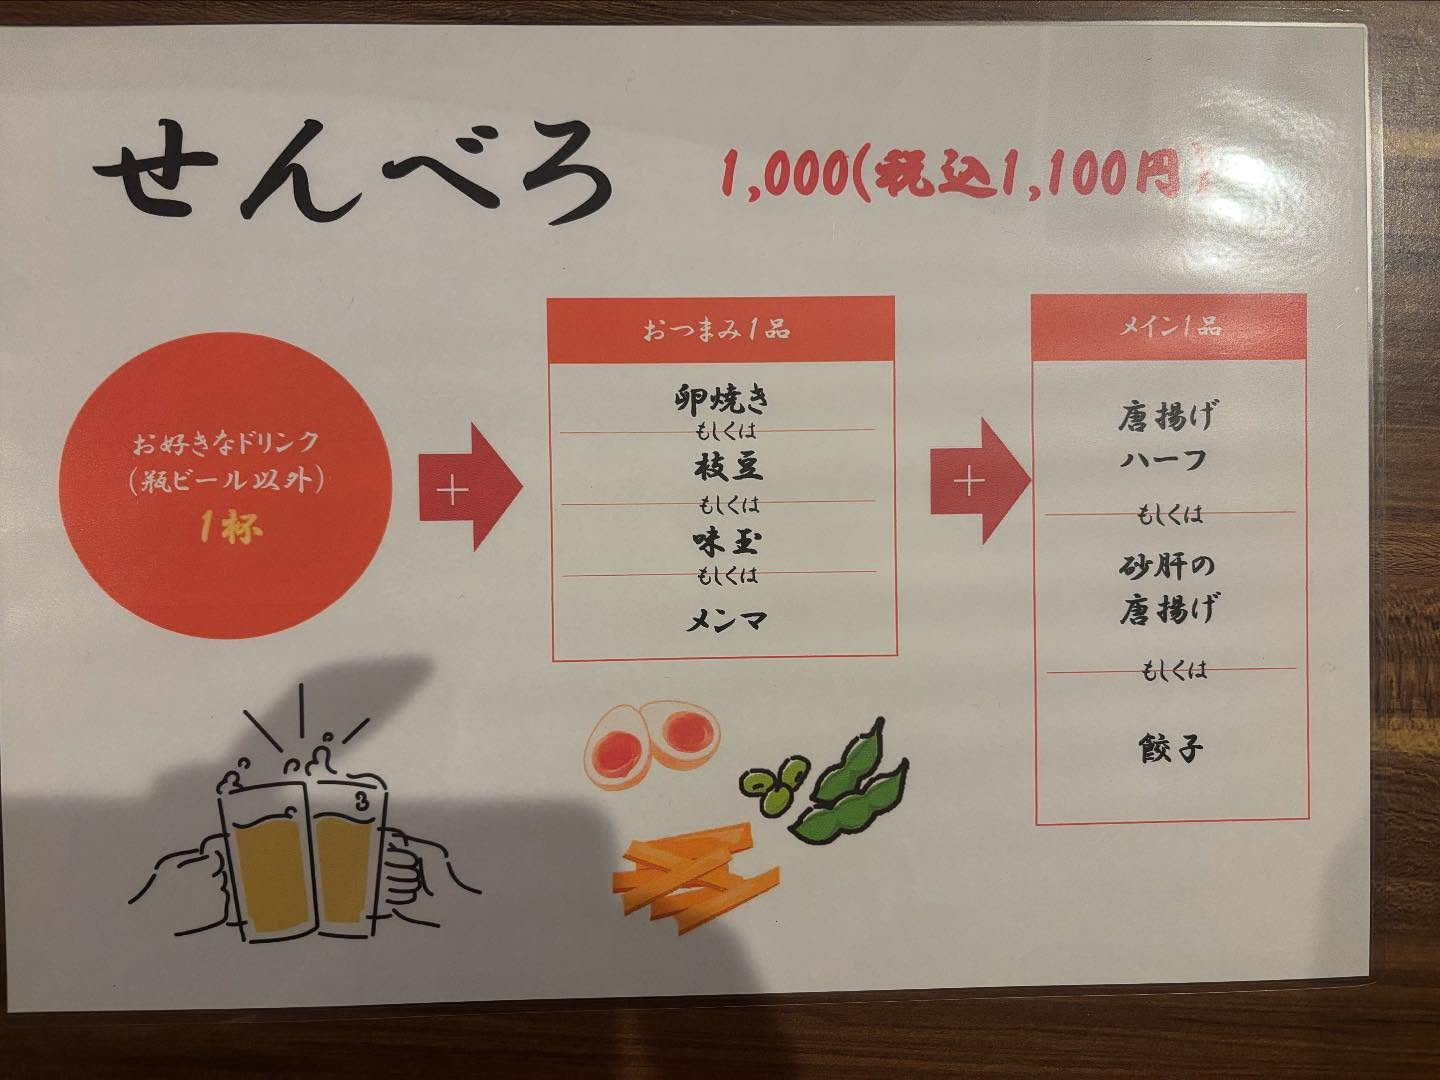 せんべろ
1,000(税込1,100円)
お好きなドリンク
(瓶ビール以外)
1杯
+
おつまみ1品
卵焼き
もしくは
枝豆
もしくは
味玉
もしくは
メンマ
+
メイン1品
唐揚げ
ハーフ
もしくは
砂肝の
唐揚げ
もしくは
餃子